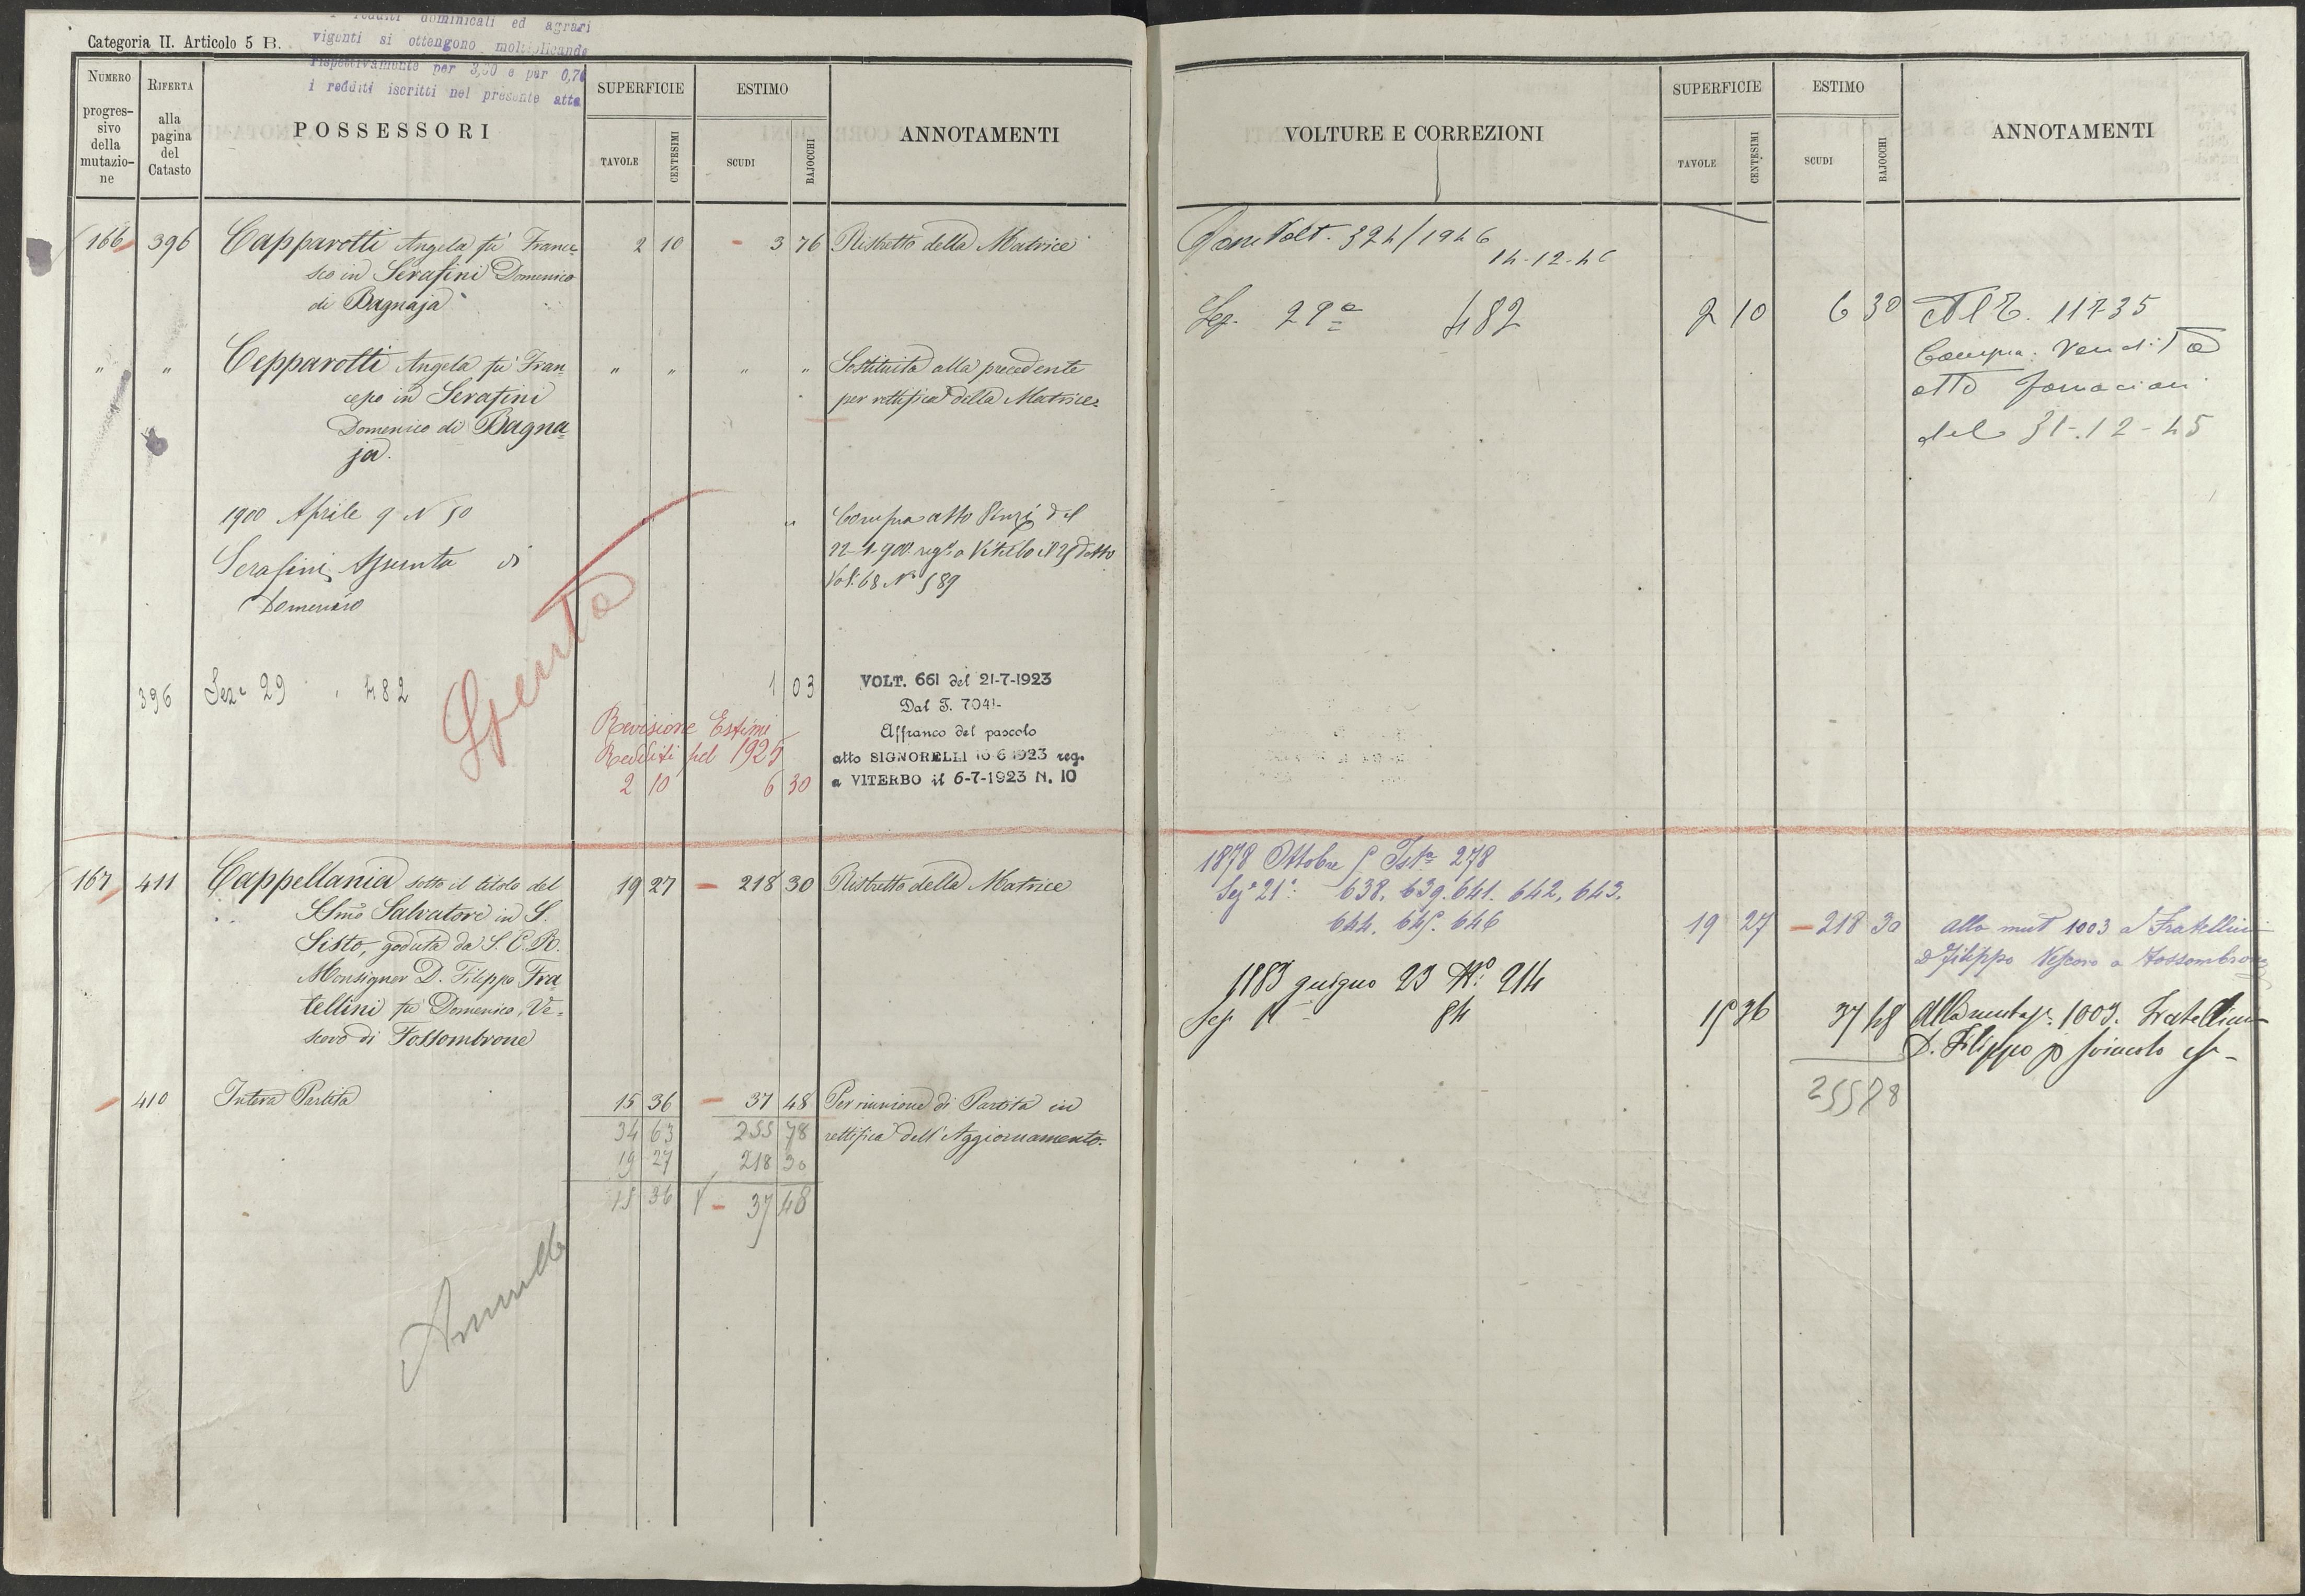 i redditi dominicali ed agrari
vigenti si ottengono moltiplicando
rispettivamente per 3,00 e per 0,70
i redditi iscritti nel presente atto
Categoria II. Articolo 5 B.
NUMERO progressivo della mutazione
RIFERTA alla pagina del Catasto
POSSESSORI
SUPERFICIE
TAVOLE
CENTESIMI
ESTIMO
SCUDI
BAJOCCHI
ANNOTAMENTI
166 396 Capparotti Angela fu France- 2 10 - 3 76 Ristretto della Matrice
sco in Serafini Domenico
di Bagnaja
" " Cepparotti Angela fu Fran- " " " " Sostituita alla precedente
cesco in Serafini per rettifica della Matrice
Domenico di Bagna-
ja.
1900 Aprile 9 N 50 " Compra atto Pinzi del
Serafini Assunta di 22-1-900 reg. a Viterbo il 25 detto
Domenico Vol. 68 N° 589
Spenta
396 Sez. 29 482 1 03 VOLT. 661 del 21-7-1923
Dal T. 7041-
Affranco del pascolo
atto SIGNORELLI 16 6 1923 reg.
a VITERBO il 6-7-1923 N. 10
Revisione Estimi
Redditi pel 1925
2 10 6 30
167 411 Cappellania sotto il titolo del 19 27 - 218 30 Ristretto della Matrice
SSmo Salvatore in S.
Sisto, goduta da S. E. R.
Monsignor D. Filippo Fra-
tellini fu Domenico, Ve-
scovo di Fossombrone
410 Intera Partita 15 36 - 37 48 Per riunione di Partita in
34 63 255 78 rettifica dell'Aggiornamento.
19 27 218 30
15 36 - 37 48
Annulla
VOLTURE E CORREZIONI
SUPERFICIE
TAVOLE
CENTESIMI
ESTIMO
SCUDI
BAJOCCHI
ANNOTAMENTI
Volt. 324/1946
14-12-46
Sez. 29a 482 2 10 6 30 Al T. 11735
Compra. Vendita
atto Fornaciari
del 31-12-45
1878 Ottobre 5 Ist. 278
Sez. 21. 638. 639. 641. 642. 643.
644. 645. 646 19 27 - 218 30 Alla mut 1003 a Fratellini
D Filippo Vescovo a Fossombrone
1883 giugno 23 N° 214
Sez. 84 15 36 37 48 Alla mutaz. 1003. Fratellini
D. Filippo p svincolo
255 78